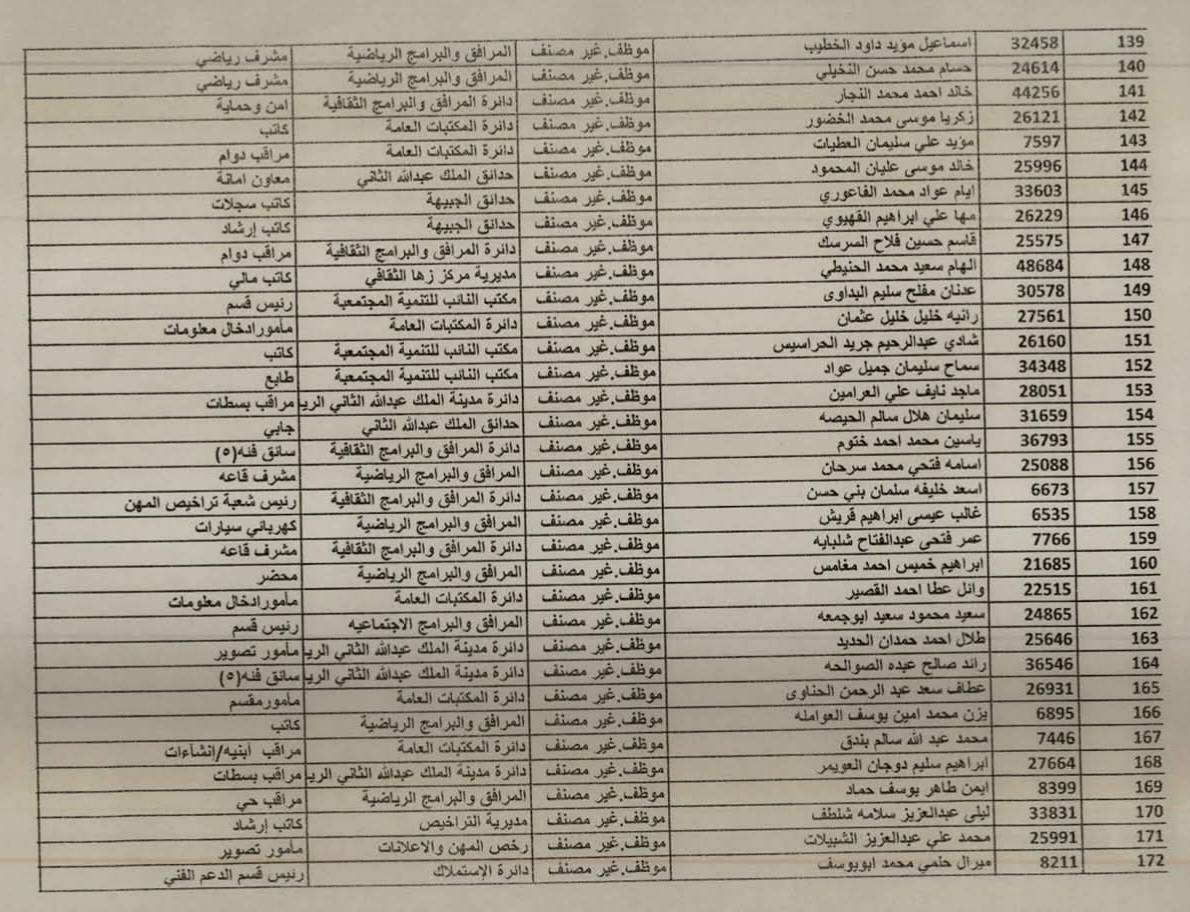 139 32458 اسماعيل مؤيد داود الخطيب موظف.غير مصنف المرافق والبرامج الرياضية مشرف رياضي
140 24614 حسام محمد حسن النخيلي موظف.غير مصنف المرافق والبرامج الرياضية مشرف رياضي
141 44256 خالد احمد محمد النجار موظف.غير مصنف دائرة المرافق والبرامج الثقافية امن وحماية
142 26121 زكريا موسى محمد الخضور موظف.غير مصنف دائرة المكتبات العامة كاتب
143 7597 مؤيد علي سليمان العطيات موظف.غير مصنف دائرة المكتبات العامة مراقب دوام
144 25996 خالد موسى عليان المحمود موظف.غير مصنف حدائق الملك عبدالله الثاني معاون امانة
145 33603 ايام عواد محمد الفاعوري موظف.غير مصنف حدائق الجبيهة كاتب سجلات
146 26229 مها علي ابراهيم القهيوي موظف.غير مصنف حدائق الجبيهة كاتب إرشاد
147 25575 قاسم حسين فلاح المرسك موظف.غير مصنف دائرة المرافق والبرامج الثقافية مراقب دوام
148 48684 الهام سعيد محمد الحنيطي موظف.غير مصنف مديرية مركز زها الثقافي كاتب مالي
149 30578 عدنان مفلح سليم البداوى موظف.غير مصنف مكتب النائب للتنمية المجتمعية رئيس قسم
150 27561 رانيه خليل خليل عثمان موظف.غير مصنف دائرة المكتبات العامة مأمورادخال معلومات
151 26160 شادي عبدالرحيم جريد الحراسيس موظف.غير مصنف مكتب النائب للتنمية المجتمعية كاتب
152 34348 سماح سليمان جميل عواد موظف.غير مصنف مكتب النائب للتنمية المجتمعية طابع
153 28051 ماجد نايف علي العرامين موظف.غير مصنف دائرة مدينة الملك عبدالله الثاني الريا مراقب بسطات
154 31659 سليمان هلال سالم الحيصه موظف.غير مصنف حدائق الملك عبدالله الثاني جابي
155 36793 ياسين محمد احمد ختوم موظف.غير مصنف دائرة المرافق والبرامج الثقافية سائق فئه(٥)
156 25088 اسامه فتحي محمد سرحان موظف.غير مصنف المرافق والبرامج الرياضية مشرف قاعه
157 6673 اسعد خليفه سلمان بني حسن موظف.غير مصنف دائرة المرافق والبرامج الثقافية رئيس شعبة تراخيص المهن
158 6535 غالب عيسى ابراهيم قريش موظف.غير مصنف المرافق والبرامج الرياضية كهربائي سيارات
159 7766 عمر فتحى عبدالفتاح شلبايه موظف.غير مصنف دائرة المرافق والبرامج الثقافية مشرف قاعه
160 21685 ابراهيم خميس احمد مغامس موظف.غير مصنف المرافق والبرامج الرياضية محضر
161 22515 وائل عطا احمد القصير موظف.غير مصنف دائرة المكتبات العامة مأمورادخال معلومات
162 24865 سعيد محمود سعيد ابوجمعه موظف.غير مصنف المرافق والبرامج الاجتماعيه رئيس قسم
163 25646 طلال احمد حمدان الحديد موظف.غير مصنف دائرة مدينة الملك عبدالله الثاني الريا مأمور تصوير
164 36546 رائد صالح عبده الصوالحه موظف.غير مصنف دائرة مدينة الملك عبدالله الثاني الريا سائق فئه(٥)
165 26931 عطاف سعد عبد الرحمن الحناوى موظف.غير مصنف دائرة المكتبات العامة مأمورمقسم
166 6895 يزن محمد امين يوسف العوامله موظف.غير مصنف المرافق والبرامج الرياضية كاتب
167 7446 محمد عبد الله سالم بندق موظف.غير مصنف دائرة المكتبات العامة مراقب أبنيه/إنشاءات
168 27664 ابراهيم سليم دوجان العويمر موظف.غير مصنف دائرة مدينة الملك عبدالله الثاني الريا مراقب بسطات
169 8399 ايمن طاهر يوسف حماد موظف.غير مصنف المرافق والبرامج الرياضية مراقب حي
170 33831 ليلى عبدالعزيز سلامه شلطف موظف.غير مصنف مديرية التراخيص كاتب إرشاد
171 25991 محمد علي عبدالعزيز الشبيلات موظف.غير مصنف رخص المهن والاعلانات مأمور تصوير
172 8211 ميرال حلمي محمد ابويوسف موظف.غير مصنف دائرة الإستملاك رئيس قسم الدعم الفني